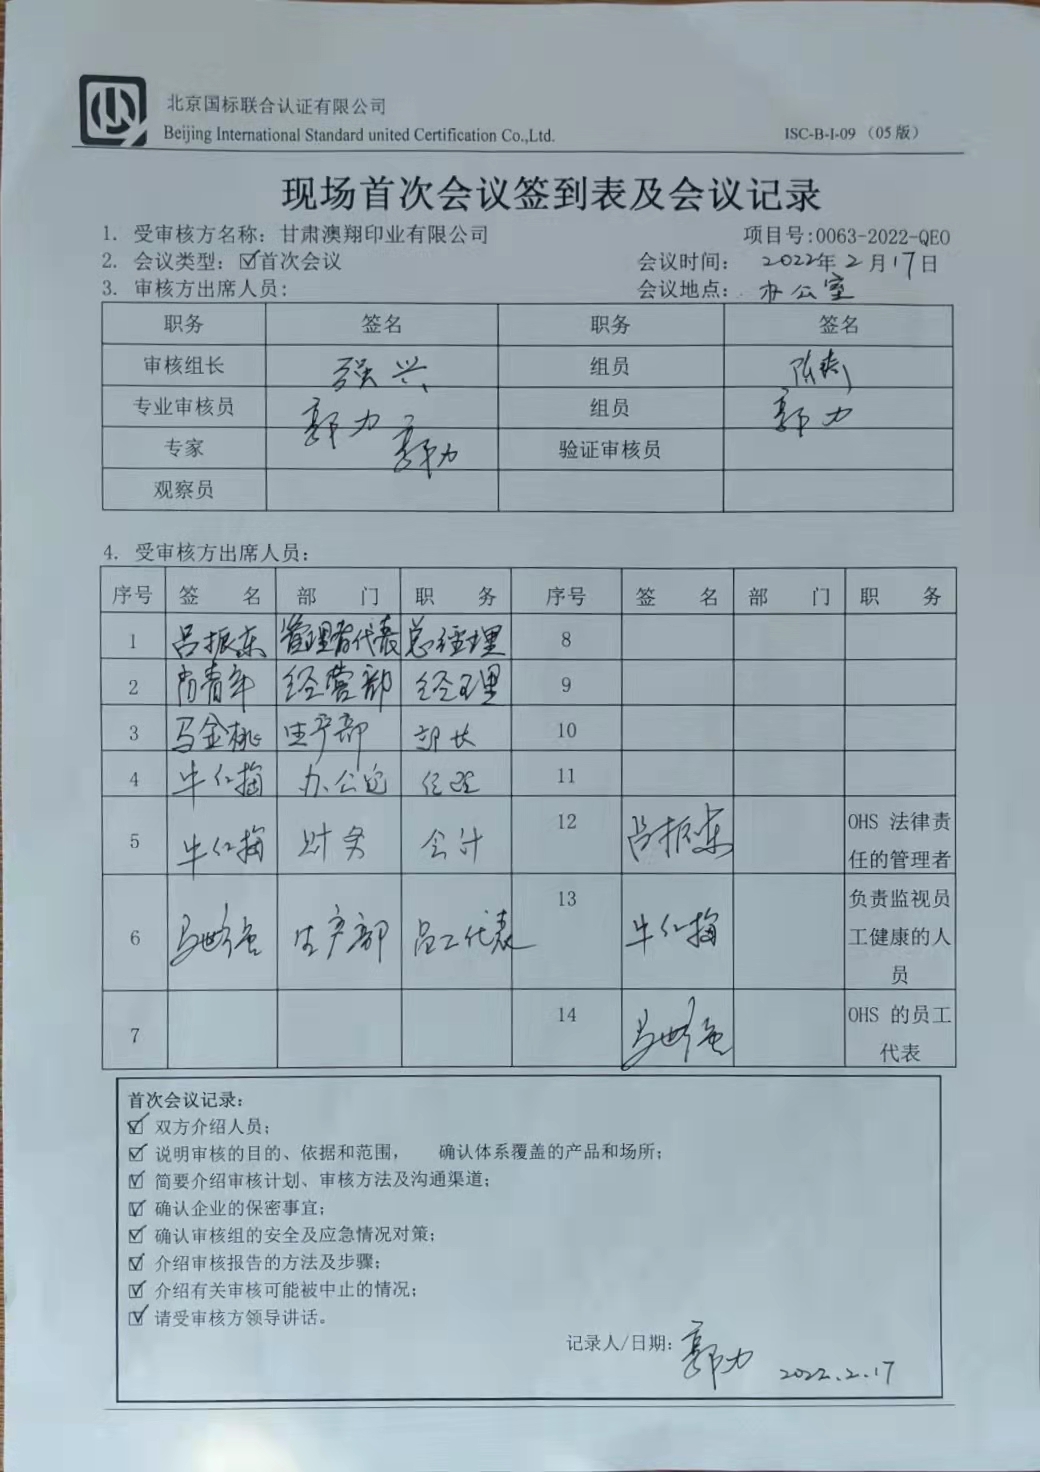 北京国标联合认证有限公司
Beijing International Standard united Certification Co.,Ltd.
ISC-B-I-09 （05 版）
现场首次会议签到表及会议记录
1. 受审核方名称: 甘肃澳翔印业有限公司 项目号:0063-2022-QEO
2. 会议类型: ☑首次会议 会议时间: 2022年 2 月 17 日
3. 审核方出席人员: 会议地点: 办公室
职务 签名 职务 签名
审核组长 强兴 组员
专业审核员 郭力 组员 郭力
专家 郭力 验证审核员
观察员
4. 受审核方出席人员:
序号 签 名 部 门 职 务 序号 签 名 部 门 职 务
1 吕振东 管理者代表 总经理 8
2 肖青年 经营部 经理 9
3 马金桃 生产部 部长 10
4 牛红梅 办公室 经理 11
5 牛红梅 财务 会计 12 吕振东 OHS 法律责
任的管理者
6 生产部 员工代表 13 牛红梅 负责监视员
工健康的人
员
7 14 OHS 的员工
代表
首次会议记录:
☑ 双方介绍人员;
☑ 说明审核的目的、依据和范围， 确认体系覆盖的产品和场所;
☑ 简要介绍审核计划、审核方法及沟通渠道;
☑ 确认企业的保密事宜;
☑ 确认审核组的安全及应急情况对策;
☑ 介绍审核报告的方法及步骤;
☑ 介绍有关审核可能被中止的情况;
☑ 请受审核方领导讲话。
记录人/日期: 郭力 2022.2.17